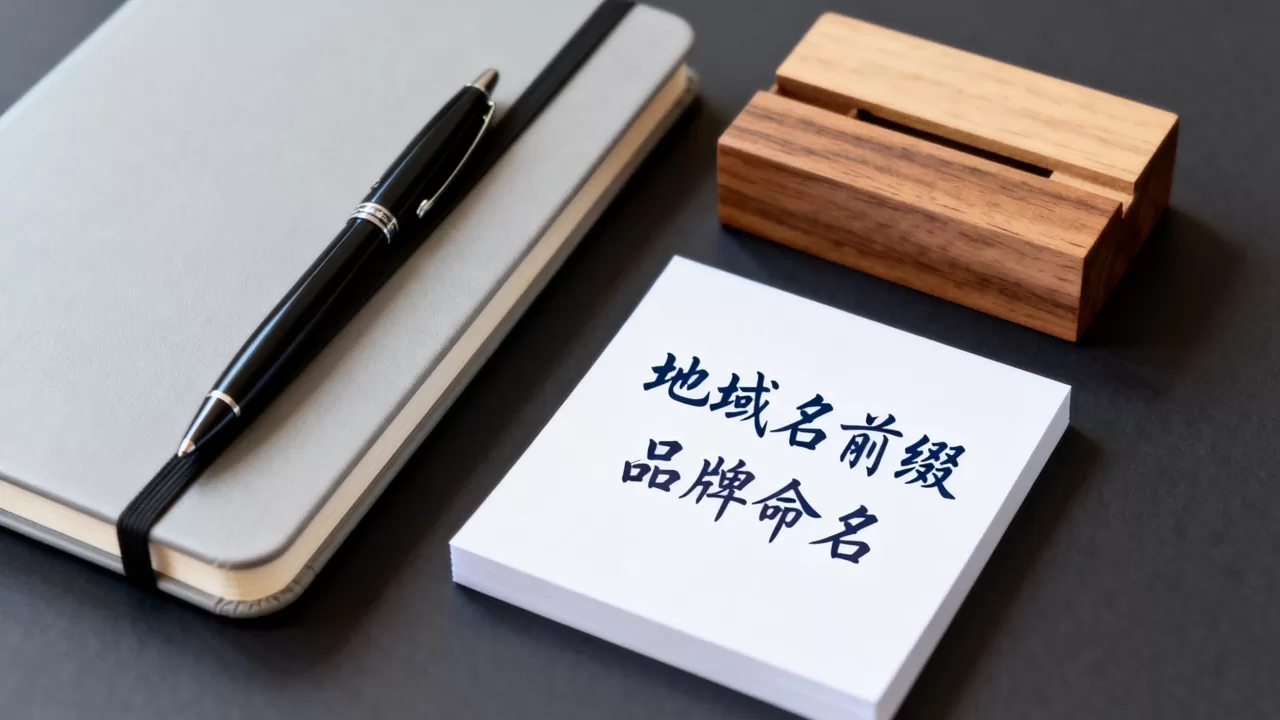 地域名前缀
品牌命名